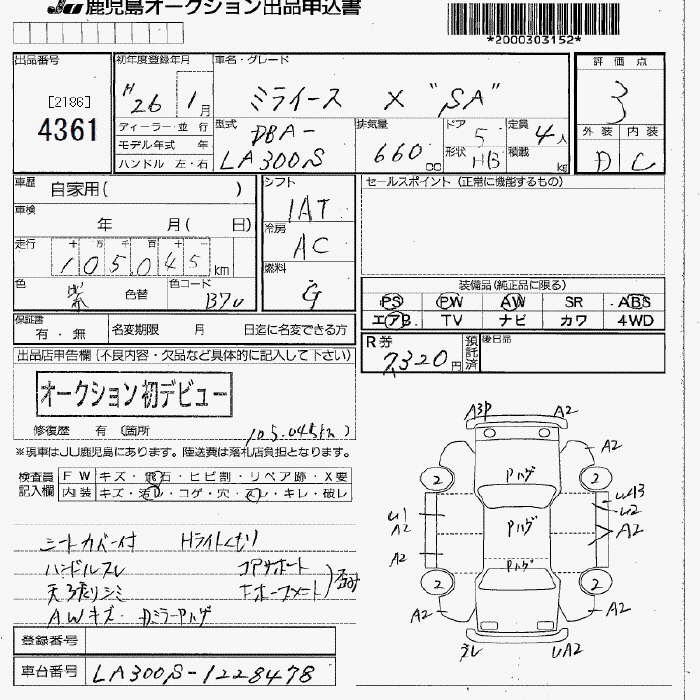 JU 鹿児島オークション出品申込書
*2000303152*
出品番号
[2186]
4361
初年度登録年月
H26 1月
ディーラー 並行
モデル年式 年
ハンドル 左・右
車名・グレード
ミライース X "SA"
型式
DBA-
LA300S
排気量
660 cc
ドア 5
形状 HB
定員 4人
積載 kg
評価点
3
外装 内装
D C
車歴 自家用( )
車検 年 月( 日)
走行 十 万 千 百 十 一
105,045 km
色 紫 色替
色コード B70
シフト
IAT
冷房
AC
燃料
G
セールスポイント (正常に機能するもの)
装備品(純正品に限る)
PS PW AW SR ABS
エアB TV ナビ カワ 4WD
保証書
有・無
名変期限 月 日迄に名変できる方
R券
7320円
預託済
後日品
出品店申告欄(不良内容・欠品など具体的に記入して下さい)
オークション初デビュー
修復歴 有 (箇所 )
105,045km
※現車はJU鹿児島にあります。陸送費は落札店負担となります。
検査員
記入欄
FW キズ・飛石・ヒビ割・リペア跡・X要
内装 キズ・汚レ・コゲ・穴・スレ・キレ・破レ
シートカバー付 Hライトくもり
ハンドルスレ コアサポート
天張りシミ Fホースメント
AWキズ Dミラーハゲ
登録番号
車台番号 LA300S-1228478
A3P A2
A2
Pハゲ
2 2
U1 A2
U3
U2
Pハゲ
A2
A2
Pハゲ
2 2
A2 A2
ワレ UA2